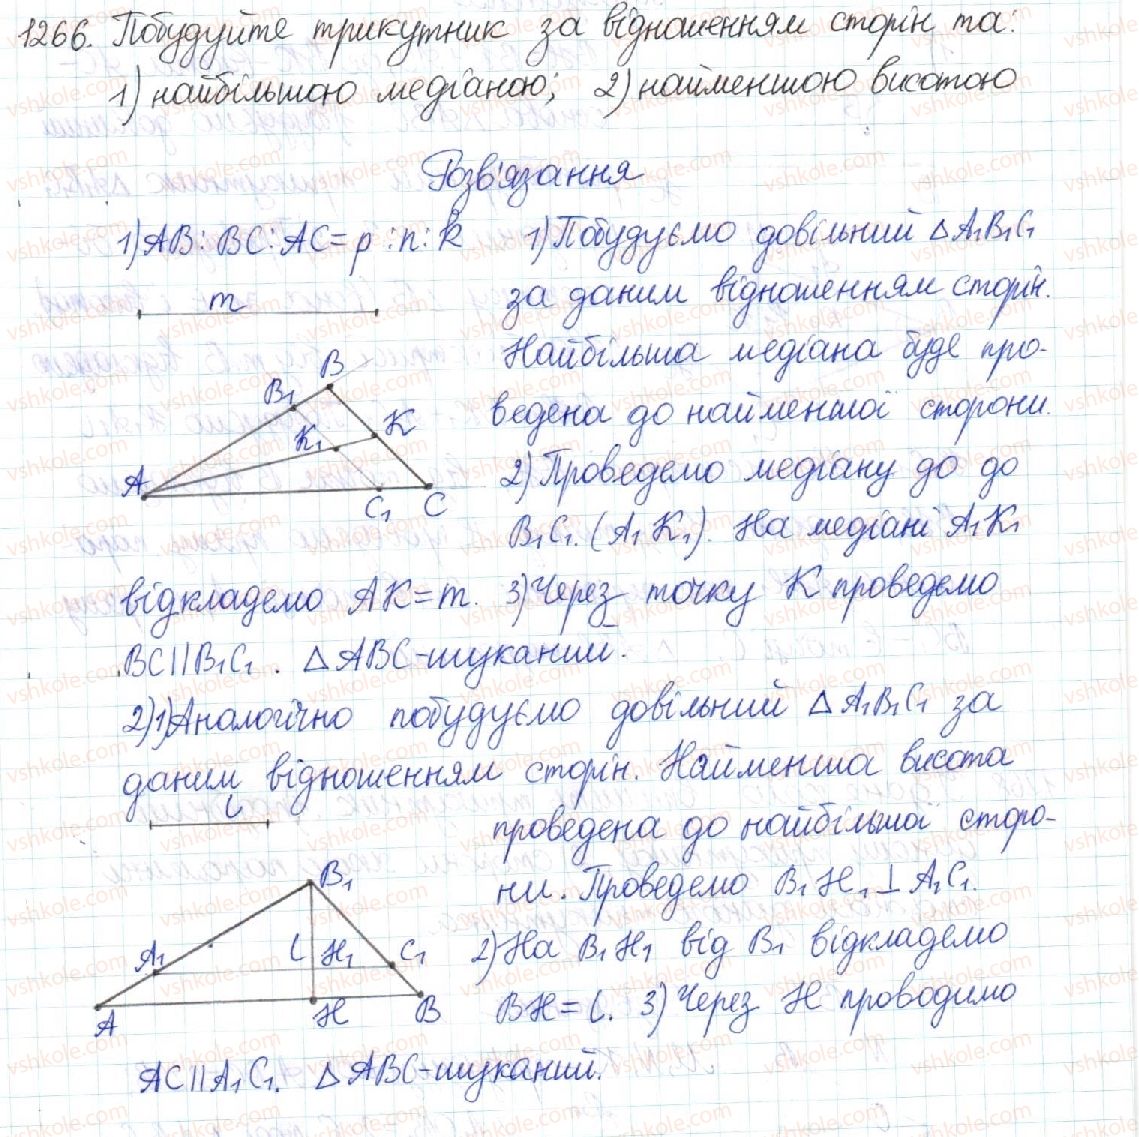 1266. Побудуйте трикутник за відношенням сторін та:
1) найбільшою медіаною; 2) найменшою висотою
Розв'язання
1) AB : BC : AC = p : n : k
m
B
B₁
K
K₁
A
C₁
C
1) Побудуємо довільний △A₁B₁C₁
за даним відношенням сторін.
Найбільша медіана буде про-
ведена до найменшої сторони.
2) Проведемо медіану до до
B₁C₁. (A₁K₁). На медіані A₁K₁
відкладемо AK = m. 3) Через точку K проведемо
BC || B₁C₁. △ABC - шуканий.
2) 1) Аналогічно побудуємо довільний △A₁B₁C₁ за
даним відношенням сторін. Найменша висота
l
проведена до найбільшої сторо-
ни. Проведемо B₁H₁ ⊥ A₁C₁.
2) На B₁H₁ від B₁ відкладемо
BH = l. 3) Через H проводимо
B₁
A₁
l
H₁
C₁
A
H
B
AC || A₁C₁. △ABC - шуканий.
vshkole.com